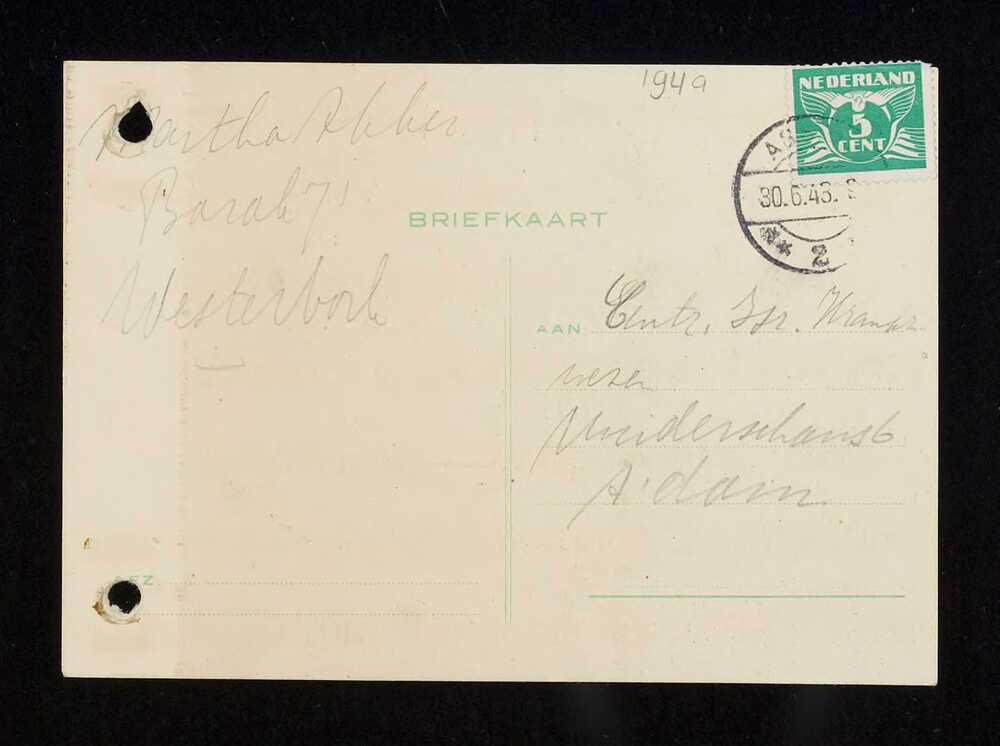 194a
NEDERLAND
5
CENT
AS
30.6.43.
2
Martha Abber
Barak 71
Westerbork
BRIEFKAART
AAN Centr. Isr. Krankz
wezen
A'dam
AFZ.